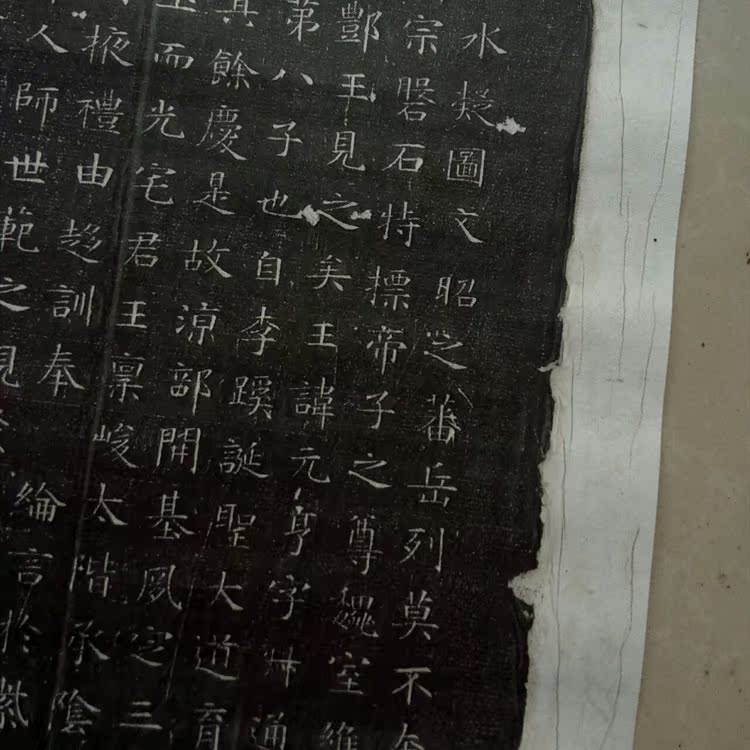 水凝圖文昭之蕃岳列莫不
宗磐石特摽帝子之尊魏室維
酆王見之矣王諱元亨字艸通
第八子也自李蹊誕聖大道育
其餘慶是故涼部開基風定三
而光宅君王稟峻太階承陰
掖禮由趍訓奉綸言於紫
人師世範之見